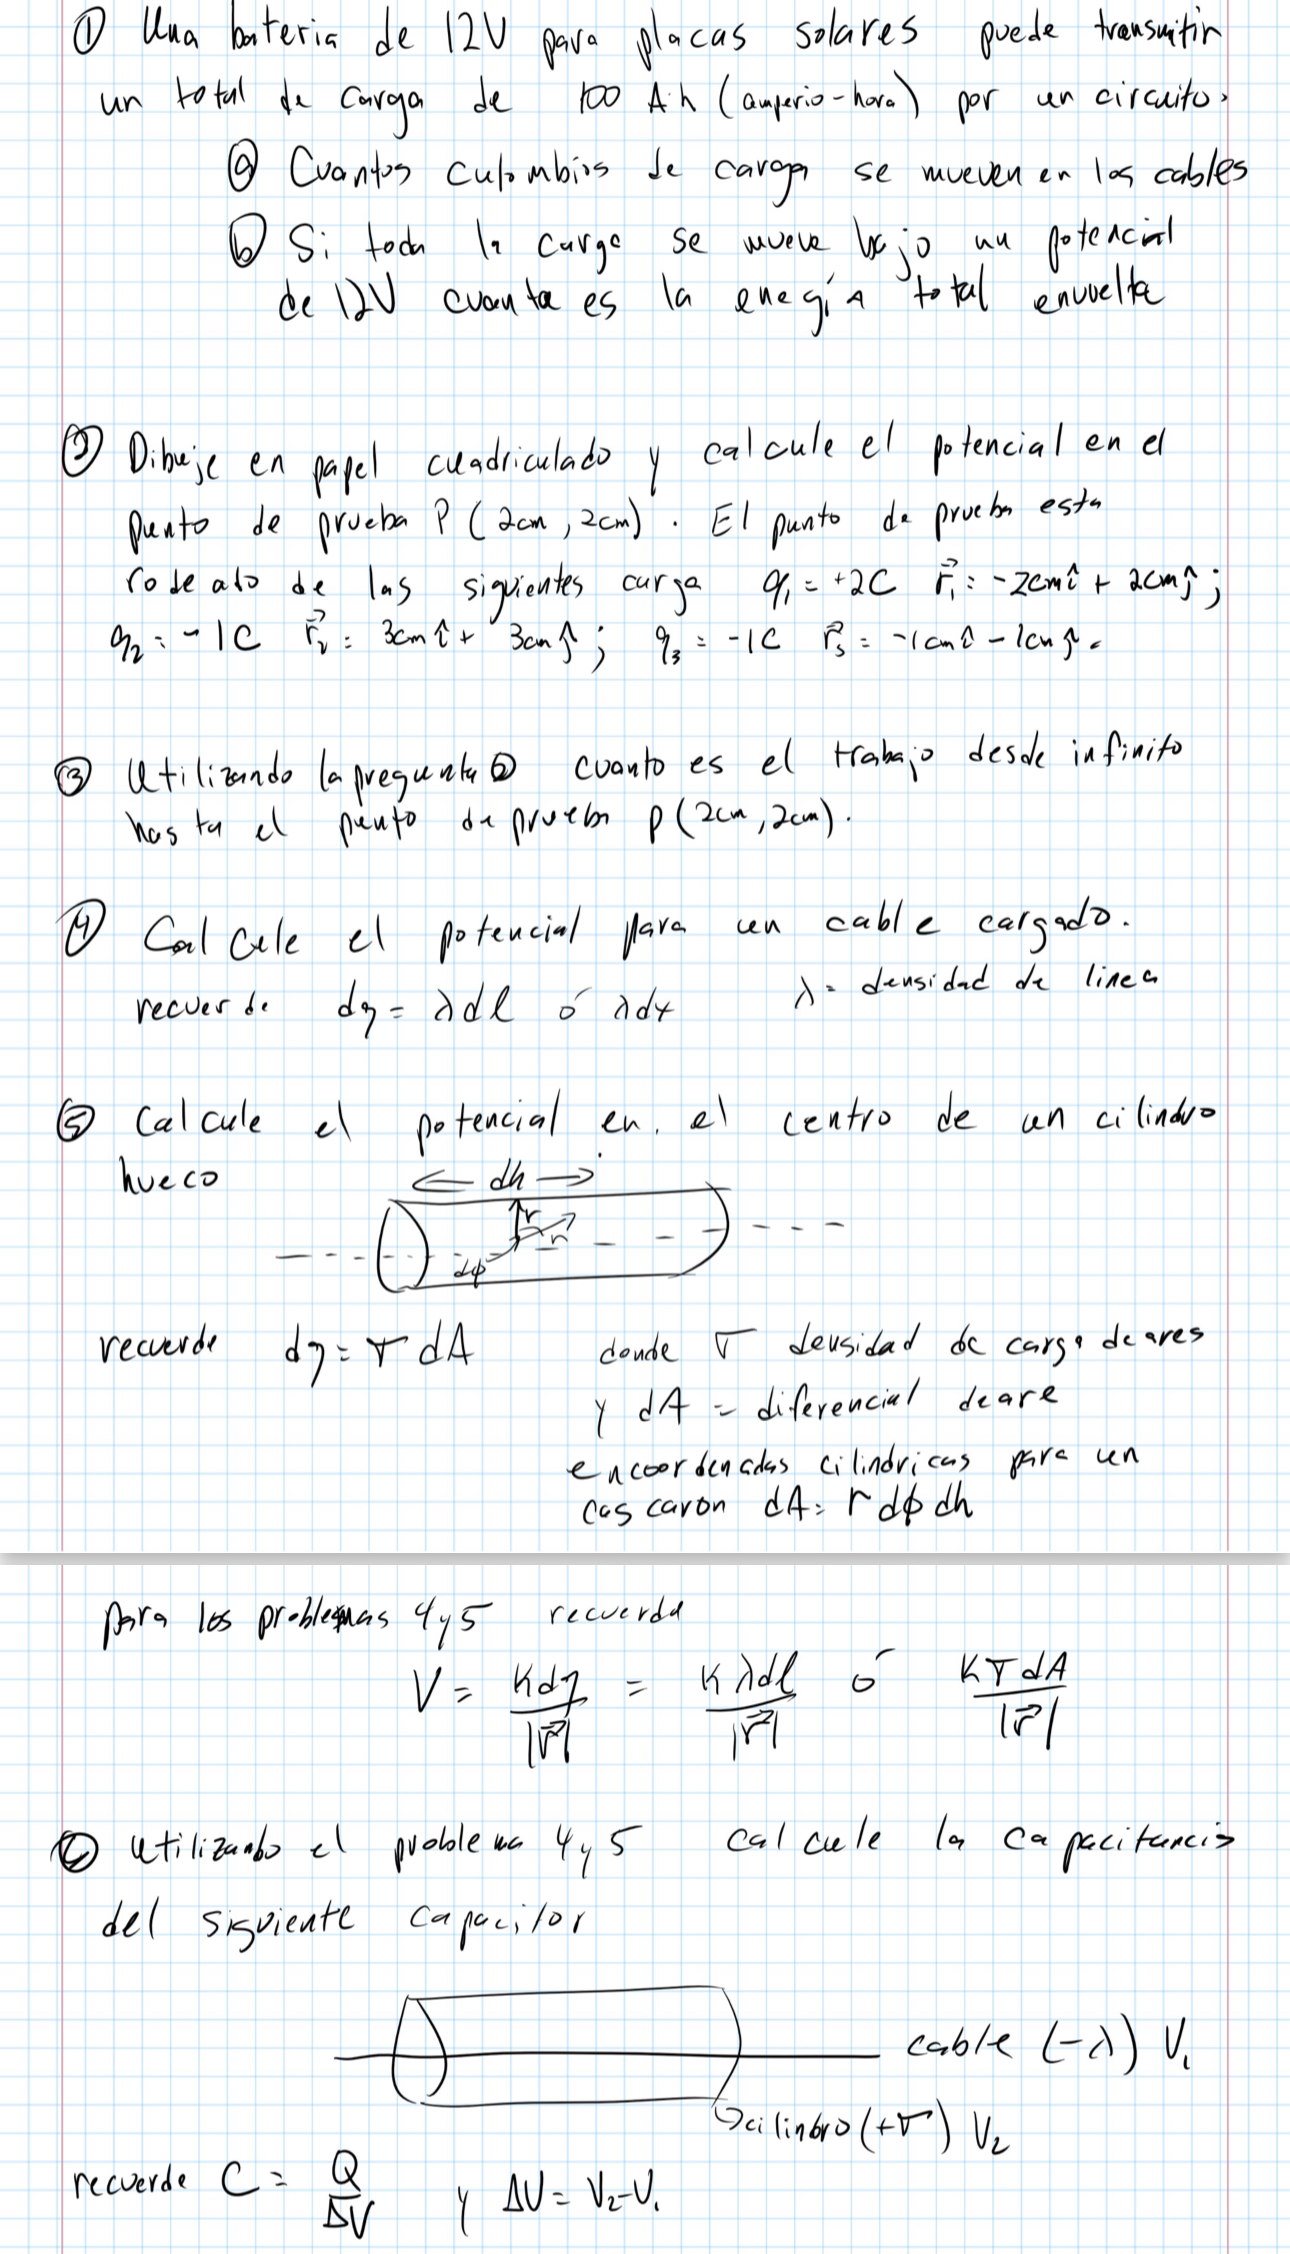 ① Una bateria de 12V para placas solares puede transmitir
un total de carga de 100 A·h (amperio-hora) por un circuito.
ⓐ Cuantos culombios de carga se mueven en los cables
ⓑ Si toda la carga se mueve bajo un potencial
de 12V cuanta es la enegía total envuelta
② Dibuje en papel cuadriculado y calcule el potencial en el
punto de prueba P (2cm, 2cm). El punto de prueba esta
rodeado de las siguientes carga q₁ = +2C r⃗₁ = -2cm î + 2cm ĵ ;
q₂ = -1C r⃗₂ = 3cm î + 3cm ĵ ; q₃ = -1C r⃗₃ = -1cm î - 1cm ĵ.
③ Utilizando la pregunta ② cuanto es el trabajo desde infinito
hasta el punto de prueba P (2cm, 2cm).
④ Calcule el potencial para un cable cargado.
recuerde dq = λdl ó λdx λ = densidad de linea
⑤ Calcule el potencial en el centro de un cilindro
hueco
← dh →
r
dφ
recuerde dq = σ dA donde σ densidad de carga de area
y dA = diferencial de area
en coordenadas cilindricas para un
cascaron dA = r dφ dh
para los problemas 4 y 5 recuerda
V = Kdq/|r⃗| = Kλdl/|r⃗| ó KσdA/|r⃗|
⑥ utilizando el problema 4 y 5 calcule la capacitancia
del siguiente capacitor
cable (-λ) V₁
cilindro (+σ) V₂
recuerde C = Q/ΔV y ΔV = V₂-V₁